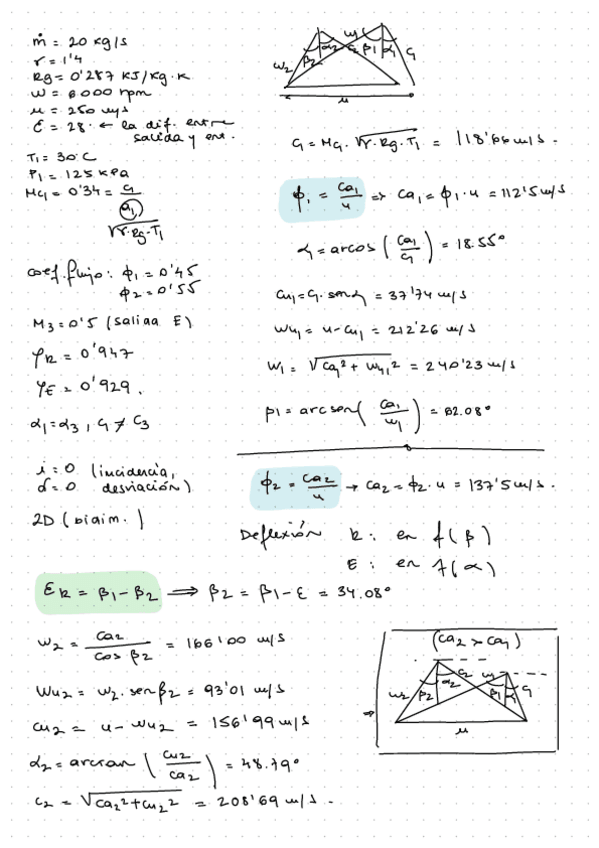 ṁ = 20 kg/s
r = 1'4
Rg = 0'287 KJ/kg·K
W = 6000 rpm
u = 250 m/s
ε = 28° ← la dif. entre
salida y ent.
T1 = 30°C
P1 = 125 kPa
Mc1 = 0'34 = c1
a1
√r·Rg·T1
coef. flujo: ϕ1 = 0'45
ϕ2 = 0'55
M3 = 0'5 (salida E)
φR = 0'947
φE = 0'929.
α1 = α3, c1 ≠ c3
i = 0 (incidencia,
d = 0 desviación)
2D (bidim.)
w2 β2 α2 c2 w1 β1 α1 c1
u
c1 = Mc1·√r·Rg·T1 = 118'66 m/s.
ϕ1 = ca1/u => ca1 = ϕ1·u = 112'5 m/s
α1 = arcos (ca1/c1) = 18.55°
cu1 = c1·senα1 = 37'74 m/s
wu1 = u - cu1 = 212'26 m/s
w1 = √ca1² + wu1² = 240'23 m/s
β1 = arcsen (ca1/w1) = 62.08°
ϕ2 = ca2/u → ca2 = ϕ2·u = 137'5 m/s.
Deflexión R: en f(β)
E: en f(α)
εR = β1 - β2 => β2 = β1 - ε = 34.08°
w2 = ca2/cos β2 = 166'00 m/s
wu2 = w2·senβ2 = 93'01 m/s
cu2 = u - wu2 = 156'99 m/s
α2 = arctan (cu2/ca2) = 48.79°
c2 = √ca2² + cu2² = 208'69 m/s.
(ca2 > ca1)
w2 β2 α2 c2 w1 β1 α1 c1
u